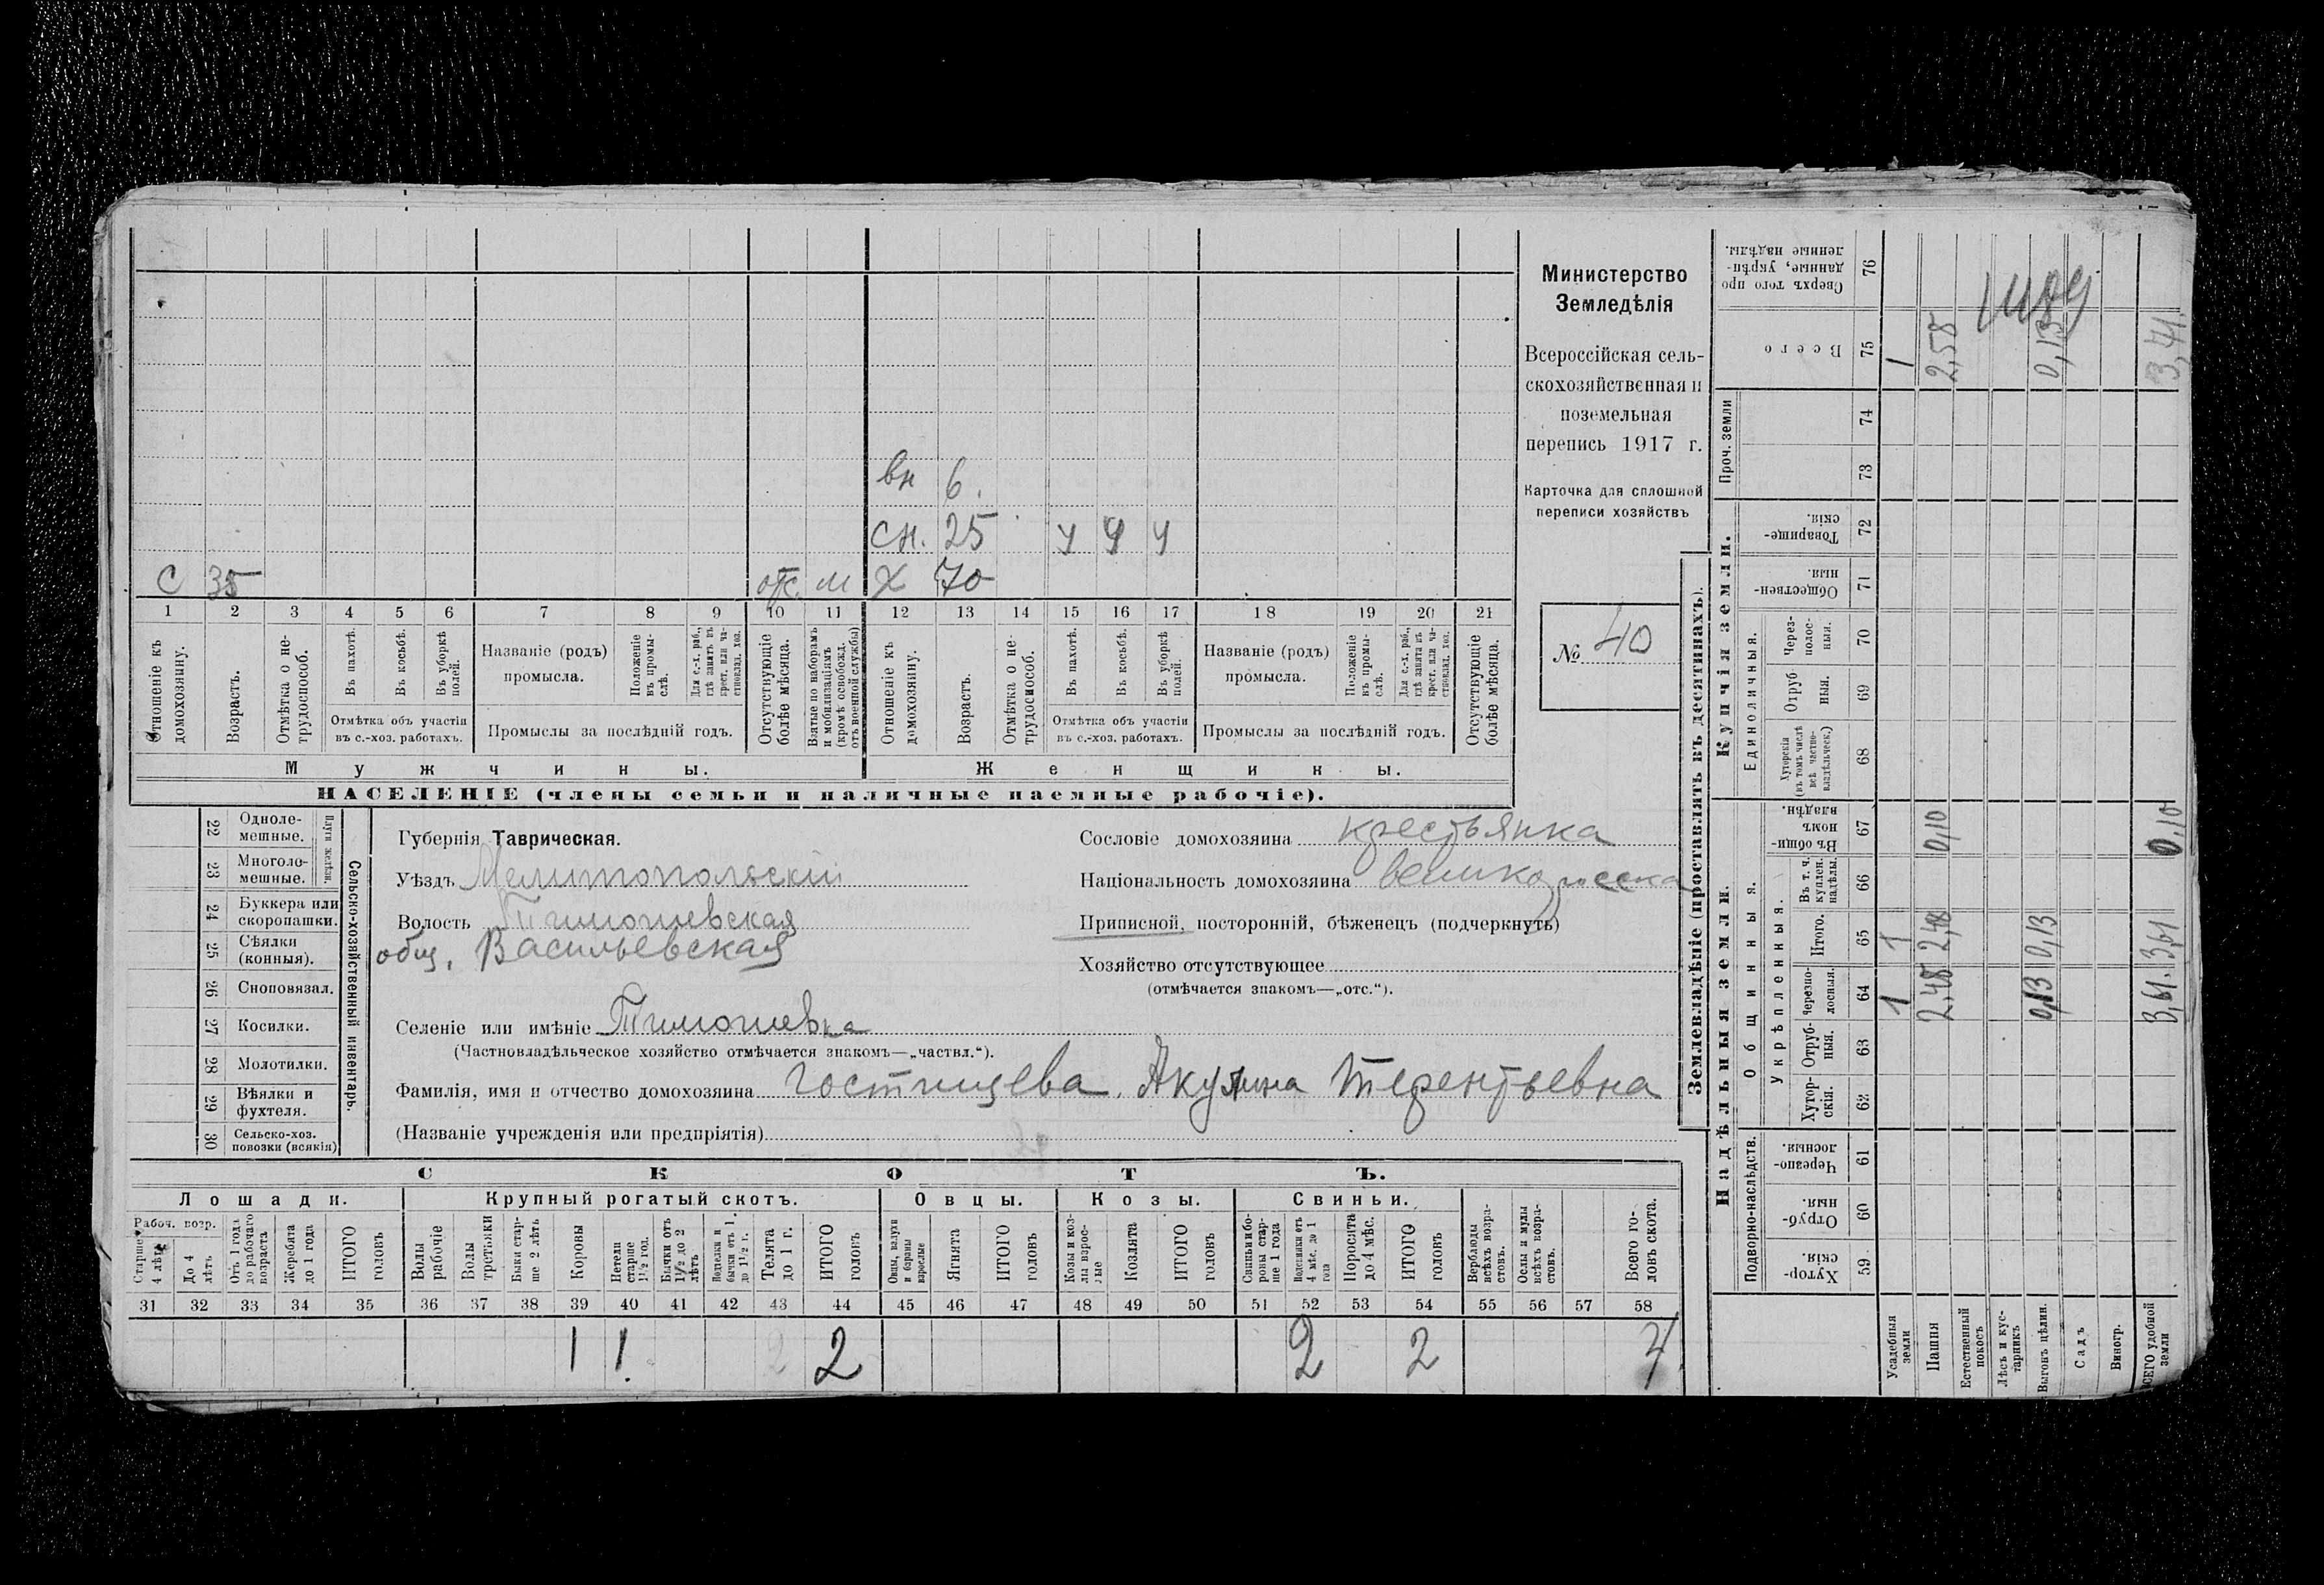 вн 6.
сн. 25 у у у
с 35 отс. м х 70
1 2 3 4 5 6 7 8 9 10 11 12 13 14 15 16 17 18 19 20 21
Отношеніе къ домохозяину.
Возрастъ.
Отмѣтка о не-трудоспособ.
Въ пахотѣ.
Въ косьбѣ.
Въ уборкѣ полей.
Отмѣтка объ участіи
въ с.-хоз. работахъ.
Названіе (родъ)
промысла.
Положеніе въ промы-слѣ.
Для с.-х. раб., гдѣ занятъ въ крест. или ча-стновлад. хоз.
Промыслы за послѣдній годъ.
Отсутствующіе болѣе мѣсяца.
Взятые по наборамъ и мобилизаціямъ (кромѣ освобожд. отъ военной службы)
Отношеніе къ домохозяину.
Возрастъ.
Отмѣтка о не-трудоспособ.
Въ пахотѣ.
Въ косьбѣ.
Въ уборкѣ полей.
Отмѣтка объ участіи
въ с.-хоз. работахъ.
Названіе (родъ)
промысла.
Положеніе въ промы-слѣ.
Для с.-х. раб., гдѣ занята въ крест. или ча-стновлад. хоз.
Промыслы за послѣдній годъ.
Отсутствующіе болѣе мѣсяца.
Мужчины. Женщины.
НАСЕЛЕНІЕ (члены семьи и наличные наемные рабочіе).
Министерство
Земледѣлія
Всероссійская сель-
скохозяйственная и
поземельная
перепись 1917 г.
Карточка для сплошной
переписи хозяйствъ
№ 40
Сельско-хозяйственный инвентарь.
Плуги желѣзн.
22 Одноле-мешные.
23 Многоле-мешные.
24 Буккера или скоропашки.
25 Сѣялки (конныя).
26 Сноповязал.
27 Косилки.
28 Молотилки.
29 Вѣялки и фухтеля.
30 Сельско-хоз. повозки (всякія)
Губернія Таврическая.
Уѣздъ Мелитопольскій
Волость Тимошевская
общ. Васильевская
Сословіе домохозяина крестьянка
Національность домохозяина великоросска
Приписной, посторонній, бѣженецъ (подчеркнуть)
Хозяйство отсутствующее
(отмѣчается знакомъ—„отс.“).
Селеніе или имѣніе Тимошевка
(Частновладѣльческое хозяйство отмѣчается знакомъ—„частвл.“).
Фамилія, имя и отчество домохозяина Гостищева Акулина Терентьевна
(Названіе учрежденія или предпріятія)
СКОТЪ.
Лошади. Крупный рогатый скотъ. Овцы. Козы. Свиньи.
Рабоч. возр.
Старше 4 лѣтъ
До 4 лѣтъ
Отъ 1 года до рабочаго возраста
Жеребята до 1 года
ИТОГО головъ
Волы рабочіе
Волы третьяки
Быки стар-ше 2 лѣтъ
Коровы
Нетели старше 1½ год.
Бычки отъ 1½ до 2 лѣтъ
Подтелки и бычки отъ 1 до 1½ г.
Телята до 1 г.
ИТОГО головъ
Овцы, валухи и бараны взрослые
Ягнята
ИТОГО головъ
Козы и коз-лы взрос-лые
Козлята
ИТОГО головъ
Свиньи и бо-ровы стар-ше 1 года
Подсвинки отъ 4 мѣс. до 1 года
Поросята до 4 мѣс.
ИТОГО головъ
Верблюды всѣхъ возра-стовъ.
Ослы и мулы всѣхъ возра-стовъ.
Всего го-ловъ скота.
31 32 33 34 35 36 37 38 39 40 41 42 43 44 45 46 47 48 49 50 51 52 53 54 55 56 57 58
1 1 2 2 2 4
Землевладѣніе (проставлять въ десятинахъ).
Надѣльныя земли.
Купчія земли.
Подворно-наслѣдств.
Общинныя.
Укрѣпленныя.
Единоличныя.
Проч. земли
59 Хутор-скія.
60 Отруб-ныя.
61 Черезпо-лосныя.
62 Хутор-скія.
63 Отруб-ныя.
64 Черезпо-лосныя.
65 Итого.
66 Въ т. ч. куплен. надѣлы.
67 Въ общи-номъ владѣн.
68 Хуторскія (въ томъ числѣ всѣ частно-владѣльческ.)
69 Отруб ныя.
70 Через-полос-ныя.
71 Обществен-ныя.
72 Товарище-скія.
73
74
75 Всего
76 Сверхъ того про данные, укрѣп-ленные надѣлы.
Усадебныя земли 1 1 1
Пашня 2,48 2,48 0,10 2,58
Естественный покосъ
Лѣсъ и кус-тарникъ
Выгонъ цѣлин. 0,13 0,13 0,13
Садъ
Виногр.
ВСЕГО удобной земли 3,61. 3,61 0,10 3,71.